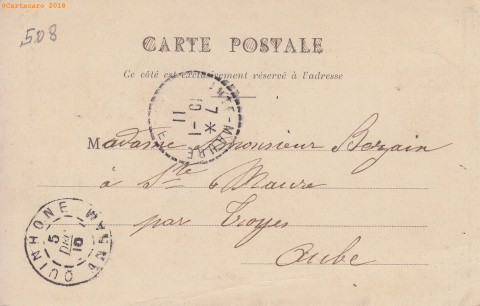 ©Cartscaro 2018
508
CARTE POSTALE
Ce côté est exclusivement réservé à l'adresse
Madame Monsieur
à Ste Maure
par Troyes
Aube
QUINHONE ANNAM
5
DEC
10